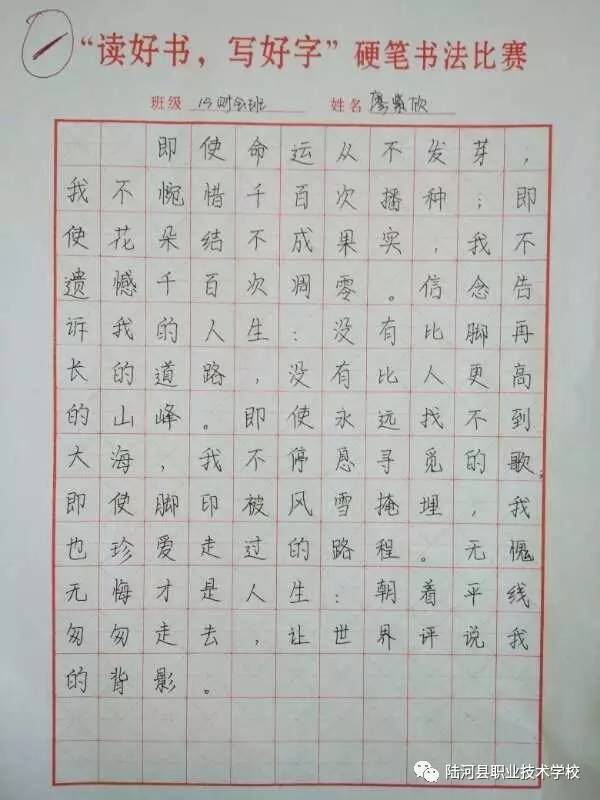 “读好书，写好字”硬笔书法比赛
班级 15财会班 姓名 廖紫欣
即使命运从不发芽，
我不惋惜千百次播种；即
使花朵结不成果实，我不
遗憾千百次凋零。信念告
诉我的人生：没有比脚再
长的道路，没有比人更高
的山峰。即使永远找不到
大海，我不停息寻觅的歌；
即使脚印被风雪掩埋，我
也珍爱走过的路程。无愧
无悔才是人生：朝着平线
匆匆走去，让世界评说我
的背影。
陆河县职业技术学校